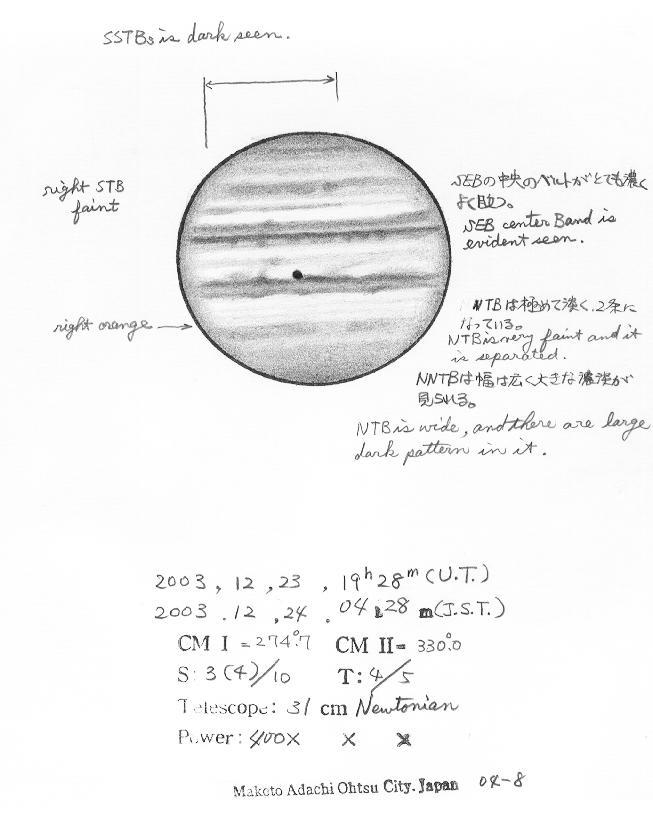 SSTBs is dark seen.
right STB
faint
SEBの中央のベルトがとても濃く
よく目立つ。
SEB center Band is
evident seen.
right orange
NTBは極めて淡く、2条に
なっている。
NTB is very faint and it
is separated.
NNTBは幅は広く大きな濃淡が
見られる。
NTB is wide, and there are large
dark pattern in it.
2003, 12, 23, 19h 28m (U.T.)
2003. 12, 24. 04h 28m (J.S.T.)
CM I = 274°.7 CM II= 330°.0
S: 3(4)/10 T: 4/5
Telescope: 31 cm Newtonian
Power: 400X X X
Makoto Adachi Ohtsu City. Japan 04-8